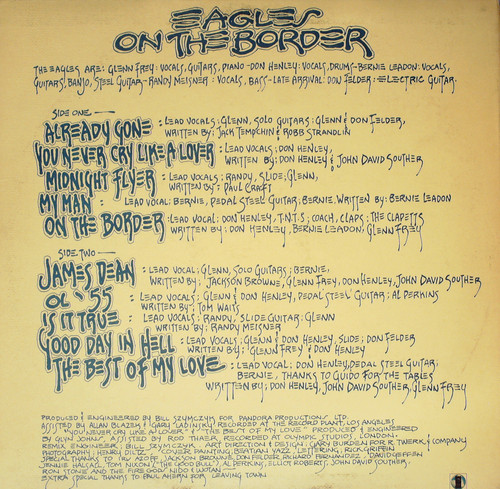 EAGLES
ON THE BORDER
THE EAGLES ARE: GLENN FREY: VOCALS, GUITARS, PIANO-DON HENLEY: VOCALS, DRUMS-BERNIE LEADON: VOCALS,
GUITARS, BANJO, STEEL GUITAR-RANDY MEISNER: VOCALS, BASS-LATE ARRIVAL: DON FELDER: ELECTRIC GUITAR.
SIDE ONE
ALREADY GONE : LEAD VOCALS: GLENN, SOLO GUITARS: GLENN & DON FELDER,
WRITTEN BY: JACK TEMPCHIN & ROBB STRANDLIN
YOU NEVER CRY LIKE A LOVER : LEAD VOCALS: DON HENLEY,
WRITTEN BY: DON HENLEY & JOHN DAVID SOUTHER
MIDNIGHT FLYER : LEAD VOCALS: RANDY, SLIDE: GLENN,
WRITTEN BY: PAUL CRAFT
MY MAN : LEAD VOCAL: BERNIE, PEDAL STEEL GUITAR: BERNIE, WRITTEN BY: BERNIE LEADON
ON THE BORDER : LEAD VOCAL: DON HENLEY, T.N.T.S; COACH, CLAPS: THE CLAPETTS
WRITTEN BY: DON HENLEY, BERNIE LEADON, GLENN FREY
SIDE TWO
JAMES DEAN : LEAD VOCAL: GLENN, SOLO GUITARS: BERNIE,
WRITTEN BY: JACKSON BROWNE, GLENN FREY, DON HENLEY, JOHN DAVID SOUTHER
OL' '55 : LEAD VOCALS: GLENN & DON HENLEY, PEDAL STEEL GUITAR: AL PERKINS
WRITTEN BY: TOM WAITS
IS IT TRUE : LEAD VOCALS: RANDY, SLIDE GUITAR: GLENN
WRITTEN BY: RANDY MEISNER
GOOD DAY IN HELL : LEAD VOCALS: GLENN & DON HENLEY, SLIDE: DON FELDER
WRITTEN BY: GLENN FREY & DON HENLEY
THE BEST OF MY LOVE : LEAD VOCAL: DON HENLEY, PEDAL STEEL GUITAR:
BERNIE, THANKS TO GUIDO FOR THE TABLES
WRITTEN BY: DON HENLEY, JOHN DAVID SOUTHER, GLENN FREY
PRODUCED & ENGINEERED BY BILL SZYMCZYK FOR PANDORA PRODUCTIONS LTD.
ASSISTED BY ALLAN BLAZEK & GARY LADINSKY, RECORDED AT THE RECORD PLANT, LOS ANGELES
"YOU NEVER CRY LIKE A LOVER" & "THE BEST OF MY LOVE" PRODUCED & ENGINEERED
BY GLYN JOHNS, ASSISTED BY ROD THAER, RECORDED AT OLYMPIC STUDIOS, LONDON.
REMIX ENGINEER: BILL SZYMCZYK ART DIRECTION & DESIGN: GARY BURDEN FOR R. TWERK & COMPANY
PHOTOGRAPHY: HENRY DILTZ COVER PAINTING: BEATIAN YAZZ LETTERING: RICK GRIFFIN
SPECIAL THANKS TO IRV AZOFF, JACKSON BROWNE, DON FELDER, RICHARD FERNANDEZ, DAVID GEFFEN
JENNIE HALLAC, TOM NIXON, ("THE GOOD BULL") AL PERKINS, ELLIOT ROBERTS, JOHN DAVID SOUTHER,
RON STONE AND THE FIRE GOW NIDO I WOTAN
EXTRA SPECIAL THANKS TO PAUL AHERN FOR LEAVING TOWN